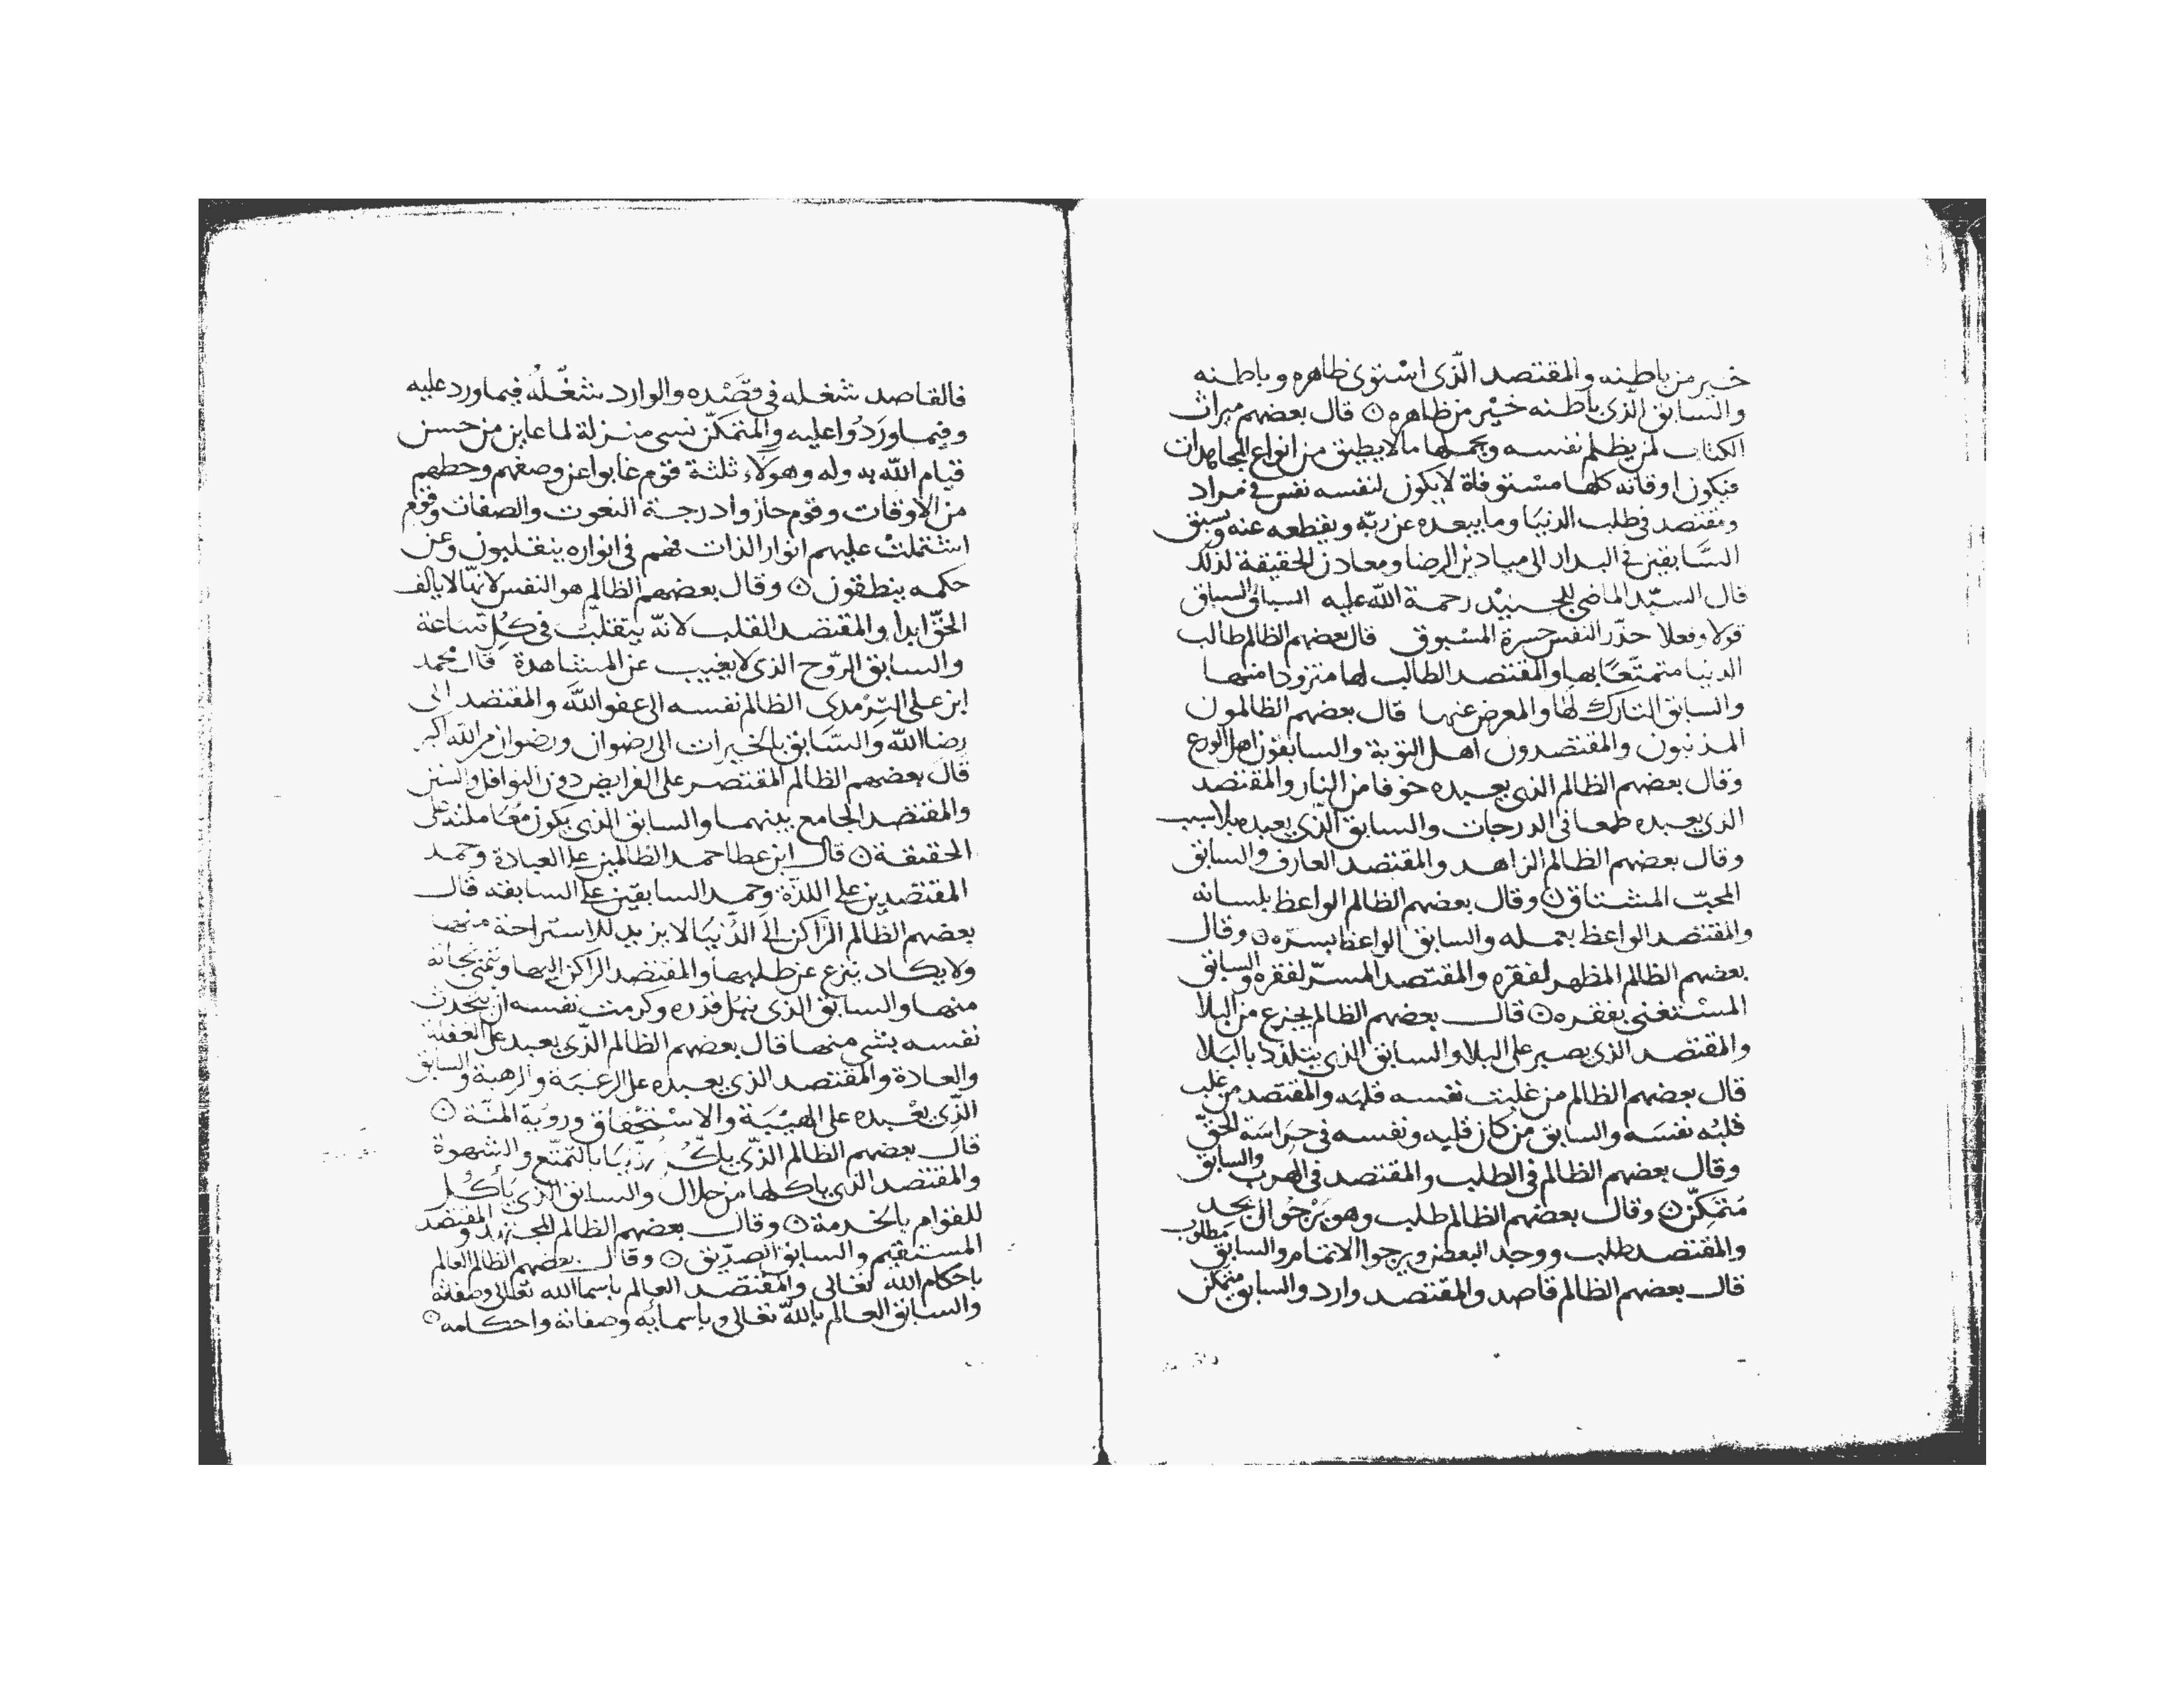 خير من باطنه والمقتصد الّذى اسْتوى ظاهره وباطنه
والسابق الّذى باطنه خيْر من ظاهره ۞ قال بعضهم ميراث
الكتاب لمن يظلم نفسه ويحملها مالا يطيق من انواع المجاهدات
فيكون اوقاته كلها مسْتوفاة لا يكون لنفسه نفس فى مراد
ومقتصد فى طلب الدنيا وما يبعده عن ربّه ويقطعه عنه وسبق
السَّابقين فى البدار الى ميادين الرضا ومعادن الحقيقة لذلك
قال السيّد الماضى الجنيْد رحمة الله عليه السباق السباق
قولا وفعلا حذّر النفس حسرة المسْبوق قال بعضهم الظالم طالب
الدنيا متمتّعًا بها والمقتصد الطالب لها متزودا منها
والسابق التارك لها والمعرض عنها قال بعضهم الظالمون
المذنبون والمقتصدون اهل التوبة والسابقون اهل الورع
وقال بعضهم الظالم الذى يعبده خوفا من النار والمقتصد
الذى يعبده طمعا فى الدرجات والسابق الّذى يعبده بلا سبب
وقال بعضهم الظالم الزاهد والمقتصد العارف والسابق
المحبّ المشتاق ۞ وقال بعضهم الظالم الواعظ بلسانه
والمقتصد الواعظ بعمله والسابق الواعظ بسرّه ۞ وقال
بعضهم الظالم المظهر لفقره والمقتصد المسرّ لفقره والسابق
المسْتغنى بفقره ۞ قال بعضهم الظالم يجزع من البلا
والمقتصد الذى يصبر على البلا والسابق الذى يتلذّذ بالبَلا
قال بعضهم الظالم من غلبت نفسه قلبَه والمقتصد من غلب
قلبُه نفسَه والسابق من كان قلبه ونفسه فى حِرَاسَة الحقّ
وقال بعضهم الظالم فى الطلب والمقتصد فى الهرب والسابق
مُتمكّن ۞ وقال بعضهم الظالم طلب وهو يَرْجُوا ان يجد
والمقتصد طلب ووجد البعض ويرجوا الاتمام والسابق مَطلوب
قال بعضهم الظالم قاصد والمقتصد وارد والسابق متمكن
فالقاصد شغله فى قصْده والوارد شغْلُه فيما ورد عليه
وفيما ورَدُوا عليه والمتمكّن نسى منزلة لما عاين من حسن
قيام الله به وله وهولاء ثلثة قوم غابوا عن وصفهم وحظهم
من الاوقات وقوم حازوا درجة النعوت والصفات وقوم
اشتملتْ عليهم انوار الذات فهم فى انواره يتقلبون وعن
حكمه ينطقون ۞ وقال بعضهم الظالم هو النفس لانها لا يالف
الحقّ ابدا والمقتصد القلب لانّه يتقلّب فى كُلّ ساعة
والسابق الرّوح الذى لا يغيب عن المشاهدة قال محمد
ابن على التِرْمذى الظالم نفسه الى عفو الله والمقتصد الى
رضا الله والسَّابق بالخيرات الى رضوان ورضوان من الله اكبر
قال بعضهم الظالم المقتصر على الفرايض دون النوافل والسنن
والمقتصد الجامع بينهما والسابق الذى يكون مُعَاملته على
الحقيقة ۞ قال ابن عطا حمد الظالمين على العبادة وحمد
المقتصدين على اللذّة وحمد السابقين على السابقه قال
بعضهم الظالم الرّاكن الى الدّنيَا لا يزيد للاستراحة منها
ولا يكاد ينزع عن طلبها والمقتصد الراكن اليها ويتمنى نجاته
منها والسابق الذى نبل قدره وكرمت نفسه ان يتحدث
نفسه بشى منها قال بعضهم الظالم الّذى يعبد على الغفلة
والعادة والمقتصد الذى يعبده على الرغبَة والرهبة والسابق
الّذى يعْبده على الهيْبَة والاسْتحْقاق وروية المنّة ۞
قال بعضهم الظالم الّذى يأكل الدّنيَا بالتمتّع والشهوة
والمقتصد الذى ياكلها من حلال والسابق الذى يأكل
للقوام بالخدمة ۞ وقال بعضهم الظالم المجتهد والمقتصد
المستقيم والسابق الصدّيق ۞ وقال بعضهم الظالم العالم
باحكام الله تعالى والمقتصد العالم باسما الله تعالى وصفاته
والسابق العالم بالله تعالى وباسمايه وصفاته واحكامه ۞